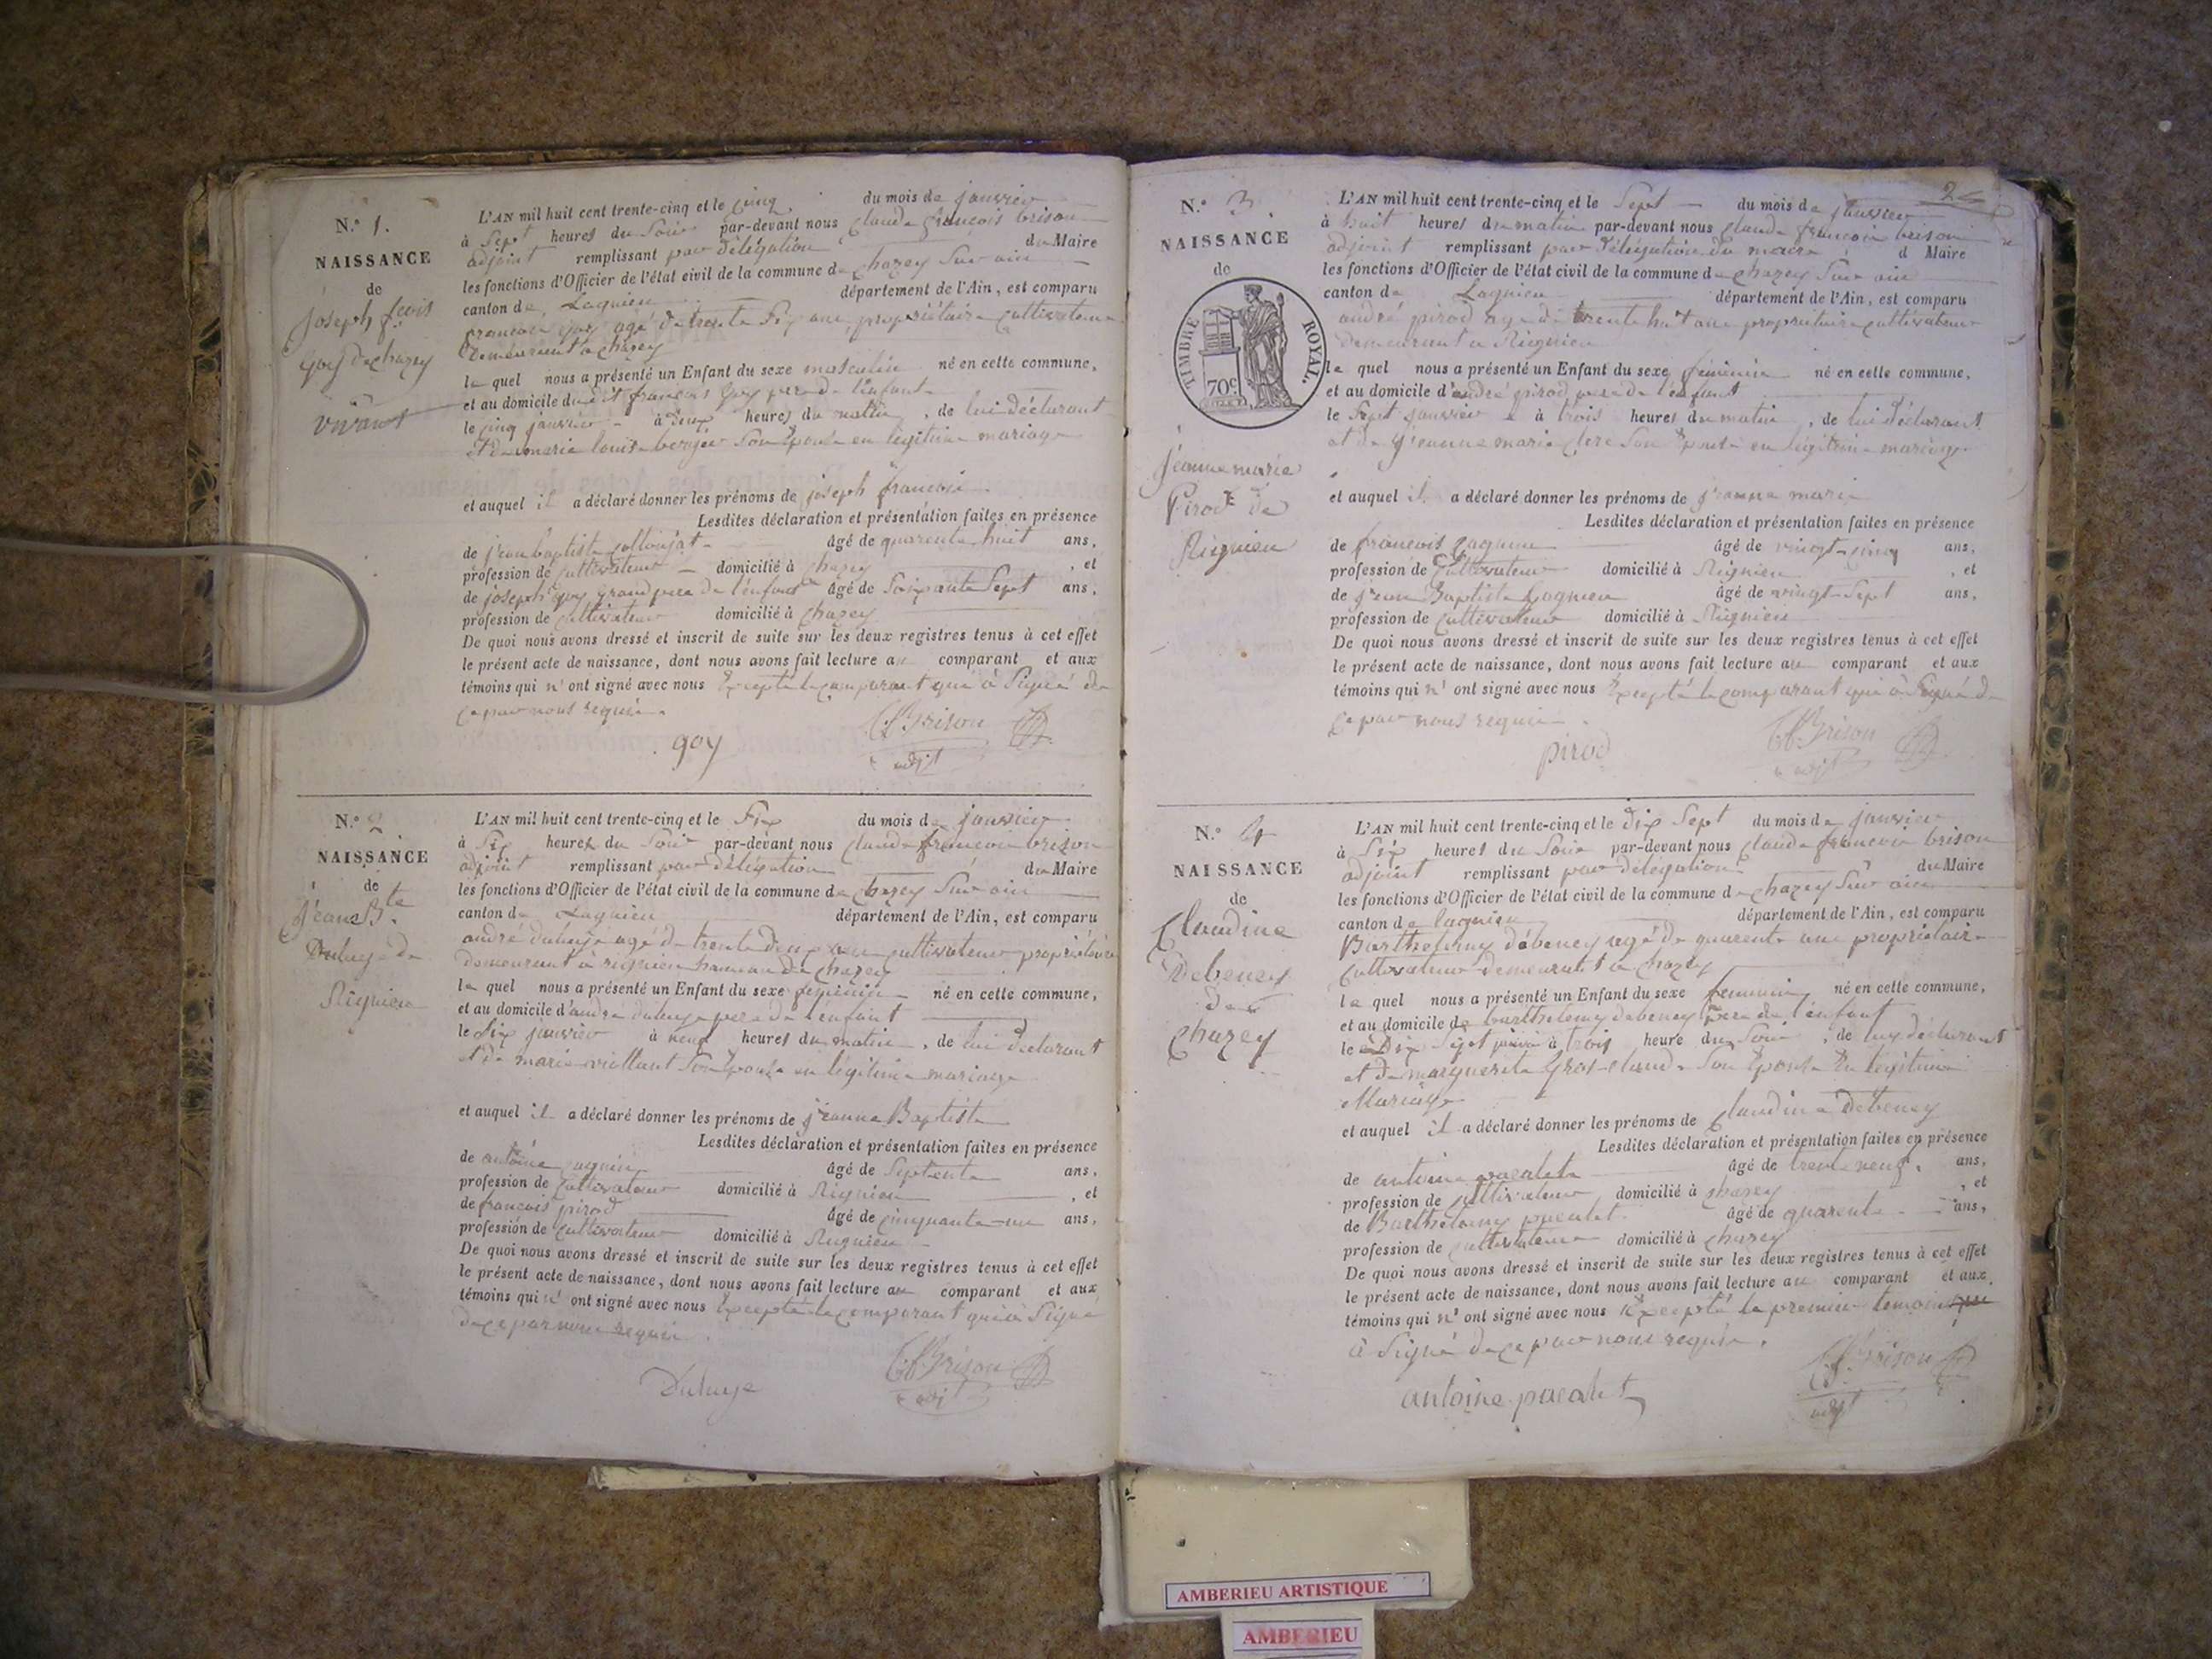 N.° 1.
NAISSANCE
de
joseph f.cois
goy de chazey
vivant
L'AN mil huit cent trente-cinq et le cinq du mois de janvier
à Sept heures du Soir par-devant nous claude françois brison
adjoint remplissant par délégation du Maire
les fonctions d'Officier de l'état civil de la commune de chazey Sur ain
canton de Lagnieu département de l'Ain, est comparu
francois goy agé de trente Six ans, propriétaire cultivateur
demeurant a chazey
le quel nous a présenté un Enfant du sexe masculin né en cette commune,
et au domicile dudit francois goy pere de l'enfant
le cinq janvier à deux heures du matin, de lui déclarant
et de marie louise berger Son Epouse en légitime mariage
et auquel il a déclaré donner les prénoms de joseph francois
Lesdites déclaration et présentation faites en présence
de jean baptiste collonjat âgé de quarente huit ans,
profession de cultivateur domicilié à chazey, et
de joseph goy grand pere de l'enfant âgé de Soixante Sept ans,
profession de cultivateur domicilié à chazey
De quoi nous avons dressé et inscrit de suite sur les deux registres tenus à cet effet
le présent acte de naissance, dont nous avons fait lecture au comparant et aux
témoins qui n'ont signé avec nous Excepté le comparant qui à Signé de
ce par nous requis.
goy C.f. Brison
adjt
N.° 2
NAISSANCE
de
jeanne B.te
Duluye de
Rignieu
L'AN mil huit cent trente-cinq et le Six du mois de janvier
à Six heures du Soir par-devant nous claude francois brison
adjoint remplissant par délégation du Maire
les fonctions d'Officier de l'état civil de la commune de chazey Sur ain
canton de Lagnieu département de l'Ain, est comparu
andré duluye agé de trente deux ans cultivateur propriétaire
demeurant à rignieu hameau de chazey
le quel nous a présenté un Enfant du sexe feminin né en cette commune,
et au domicile d'andré duluye pere de l'enfant
le Six janvier à neuf heures du matin, de lui declarant
et de marie vuillant Son Epouse en légitime mariage
et auquel il a déclaré donner les prénoms de jeanne Baptiste
Lesdites déclaration et présentation faites en présence
de antoine âgé de Septente ans,
profession de cultivateur domicilié à Rignieu, et
de francois pirod âgé de cinquante un ans,
profession de cultivateur domicilié à Rignieu
De quoi nous avons dressé et inscrit de suite sur les deux registres tenus à cet effet
le présent acte de naissance, dont nous avons fait lecture au comparant et aux
témoins qui n'ont signé avec nous Excepté le comparant qui à Signé
de ce par nous requis.
Duluye C.f. Brison
adjt
2
N.° 3
NAISSANCE
de
TIMBRE ROYAL.
70c.
jeanne marie
Pirod de
Rignieu
L'AN mil huit cent trente-cinq et le Sept du mois de janvier
à huit heures du matin par-devant nous claude francois brison
adjoint remplissant par délégation du maire d Maire
les fonctions d'Officier de l'état civil de la commune de chazey Sur ain
canton de Lagnieu département de l'Ain, est comparu
andré pirod age de trente huit ans propriétaire cultivateur
demeurant a Rignieu
le quel nous a présenté un Enfant du sexe féminin né en cette commune,
et au domicile d'andré pirod pere de l'enfant
le Sept janvier à trois heures du matin, de lui déclarant
et de jeanne marie clere Son Epouse en légitime mariage
et auquel il a déclaré donner les prénoms de jeanne marie
Lesdites déclaration et présentation faites en présence
de francois gagneu âgé de vingt-cinq ans,
profession de cultivateur domicilié à Rignieu, et
de jean Baptiste gagneu âgé de vingt-Sept ans,
profession de cultivateur domicilié à Rignieu
De quoi nous avons dressé et inscrit de suite sur les deux registres tenus à cet effet
le présent acte de naissance, dont nous avons fait lecture au comparant et aux
témoins qui n'ont signé avec nous Excepté le comparant qui à Signé de
ce par nous requis.
pirod C.f. Brison
adjt
N.° 4
NAISSANCE
de
Claudine
Debeney
de
Chazey
L'AN mil huit cent trente-cinq et le dix Sept du mois de janvier
à Six heures du Soir par-devant nous claude francois brison
adjoint remplissant par délégation du Maire
les fonctions d'Officier de l'état civil de la commune de chazey Sur ain
canton de lagnieu département de l'Ain, est comparu
Barthelemy débeney agé de quarente ans propriétaire
cultivateur demeurant a chazey
le quel nous a présenté un Enfant du sexe feminin né en cette commune,
et au domicile de barthelemy debeney pere de l'enfant
le Dix Sept janvier à trois heure du Soir, de luy déclarant
et de marguerite gros-claude Son Epouse En légitime
Mariage
et auquel il a déclaré donner les prénoms de claudine debeney
Lesdites déclaration et présentation faites en présence
de antoine pacalet âgé de trente neuf, ans,
profession de cultivateur domicilié à chazey, et
de Barthelemy pacalet âgé de quarente ans,
profession de cultivateur domicilié à chazey
De quoi nous avons dressé et inscrit de suite sur les deux registres tenus à cet effet
le présent acte de naissance, dont nous avons fait lecture au comparant et aux
témoins qui n'ont signé avec nous Excepté le premier temoin qui
à Signé de ce par nous requis.
antoine pacalet C.f. Brison
adjt
AMBERIEU ARTISTIQUE
AMBERIEU